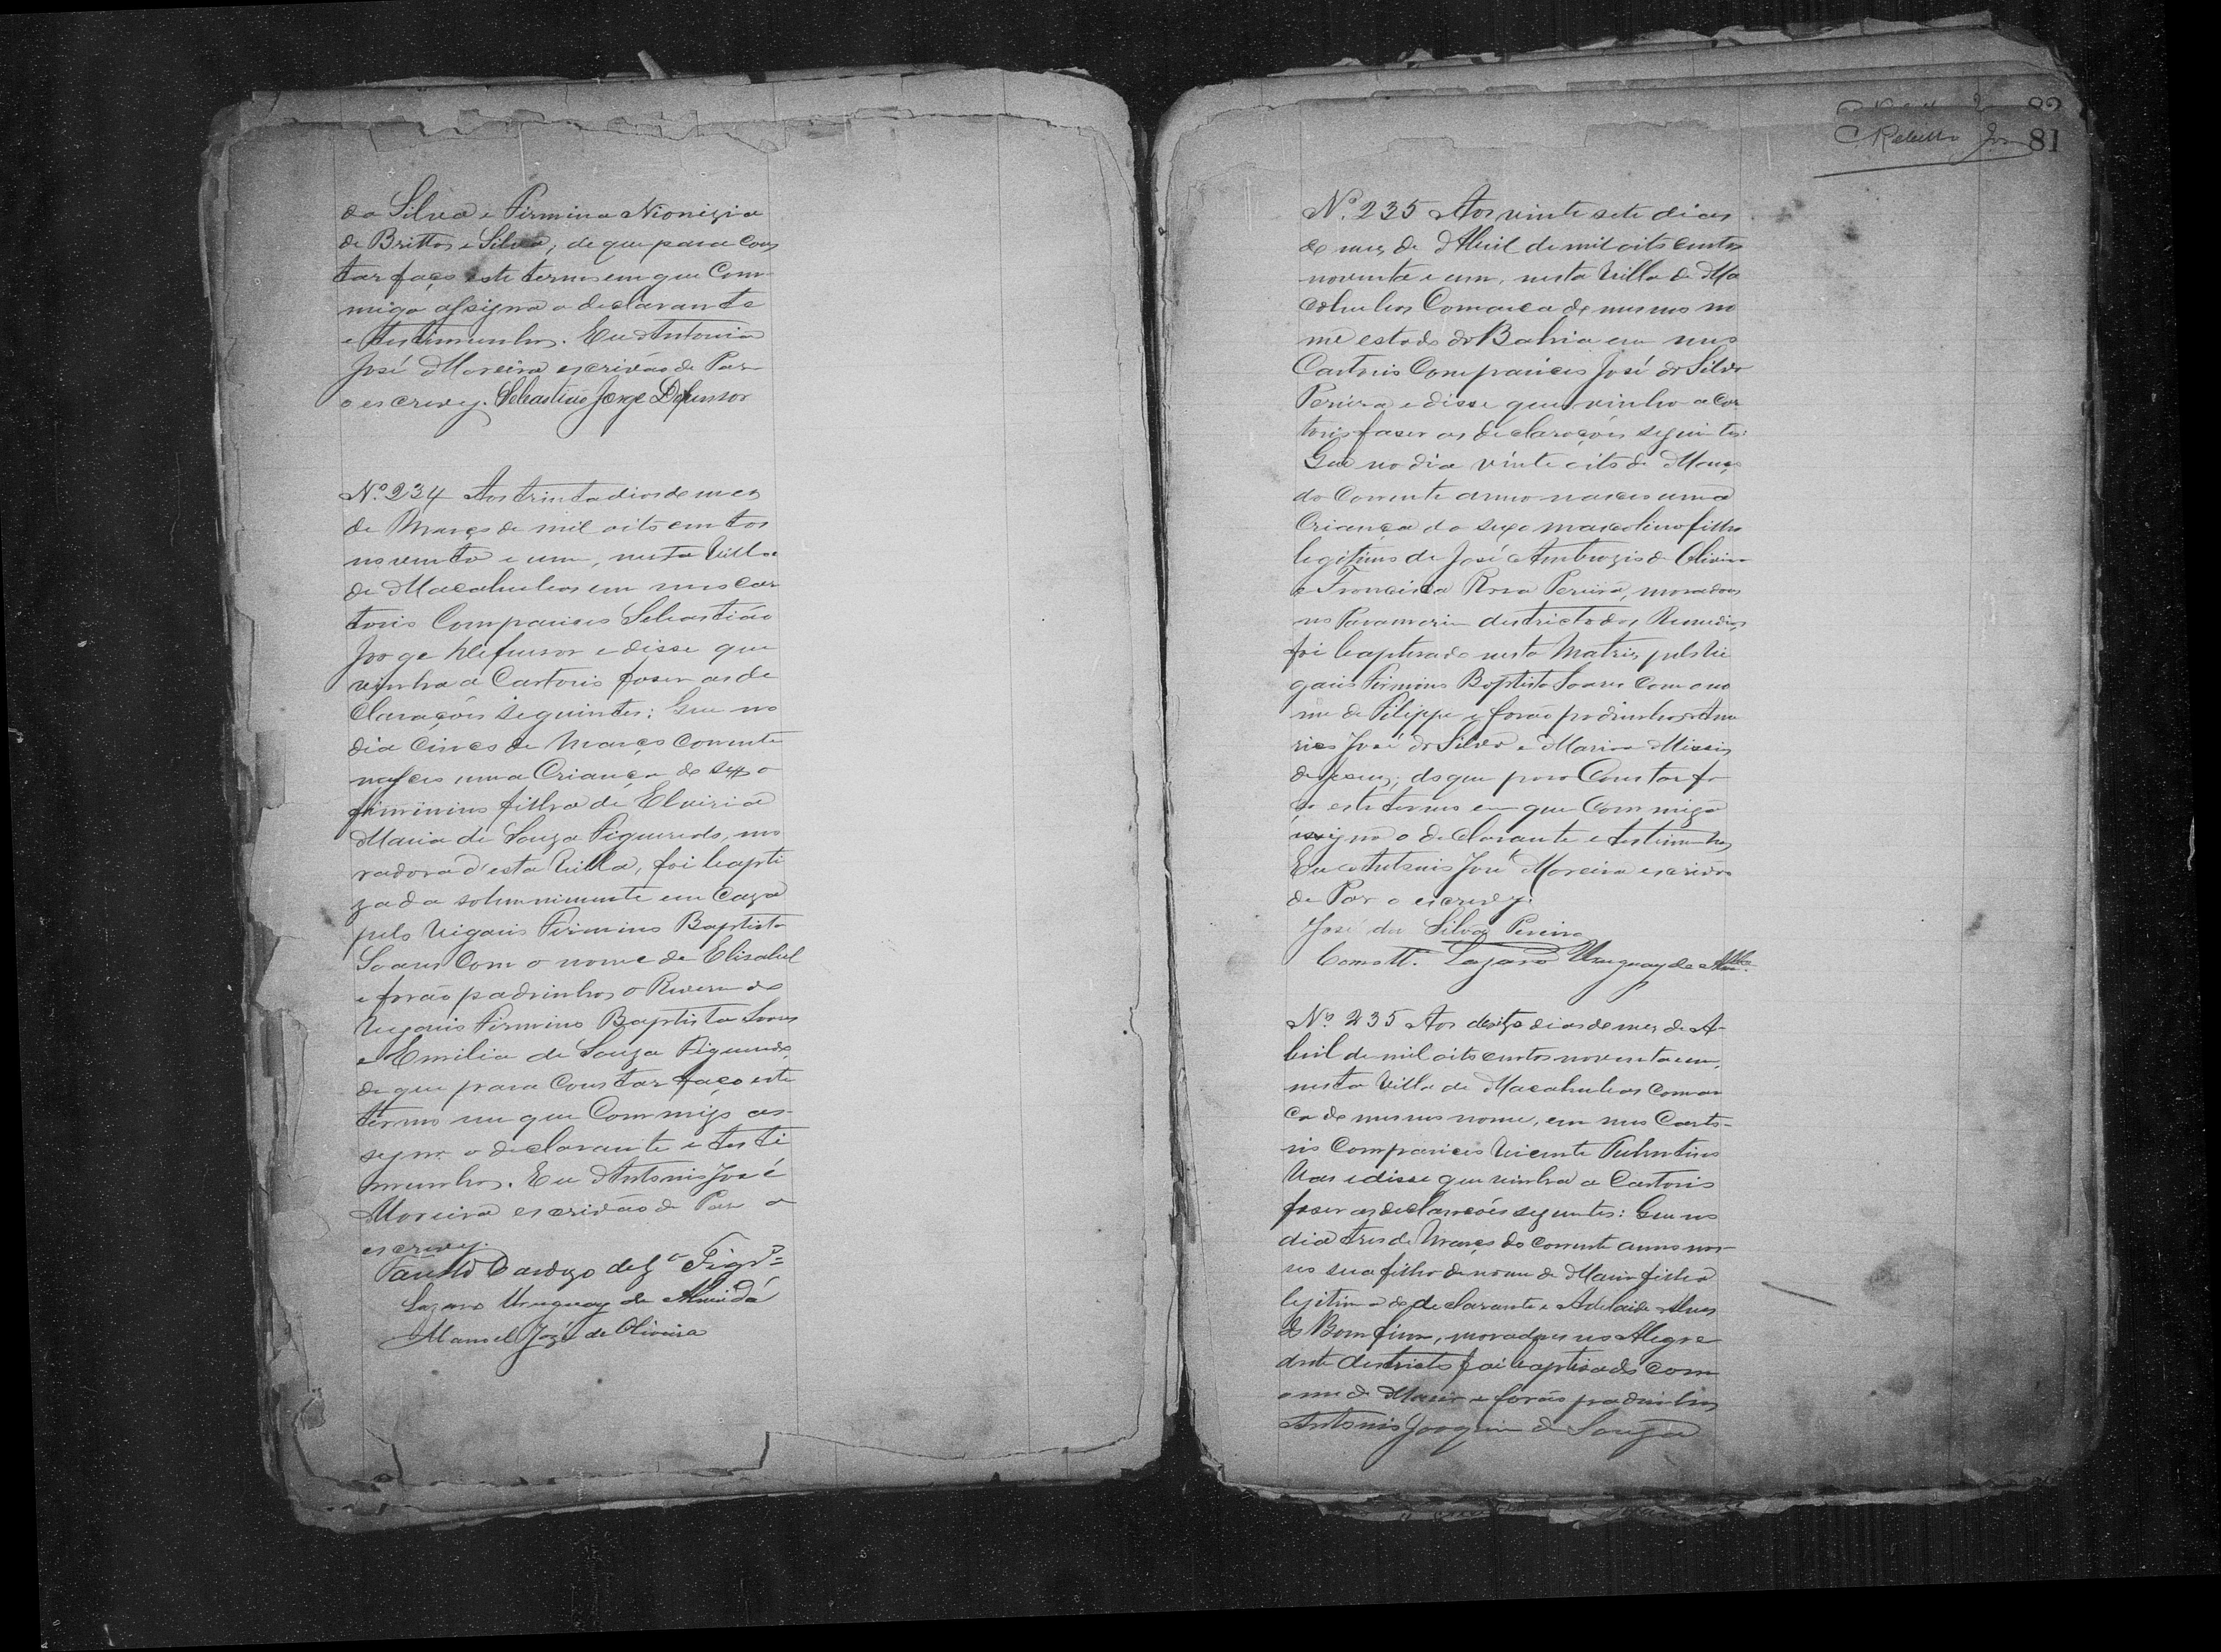 da Silva e Firmina Nionizia
de Brittos e Silva, de que para Cons
tar faço este termo em que Com
migo assigna o declarante
e testimunhas. Eu Antonio
José Moreira escrivão de Paz
o escrevy. Sebastião Jorge Defensor
Nº 234 Aos trinta dias do mez
de Março de mil oito centos
noventa e um, nesta Villa
de Macahubas em meu car
torio Compareceo Sebastião
Jorge Defensor e disse que
vinha a Cartorio faser as de
clarações seguintes: Que no
dia Cinco de Março Corrente
nasceo uma Criança do sexo
feminino filha de Elviria
Maria de Souza Figueredo, mo
radora d'esta Villa, foi bapti
zada solemnimente em Caza
pelo Vigario Firmino Baptista
Soares Com o nome de Elisabel
e forão padrinhos o Reverendo
Vigario Firmino Baptista Soares
e Emilia de Souza Figueredo,
de que para Constar faço este
termo em que Commigo as
signa o declarante e testi
munhas. Eu Antonio José
Moreira escrivão de Paz o
escrevy.
Cardozo de Fig.
Lazaro Uruguay de Almeida
Manoel José de Oliveira
81
Nº 235 Aos vinte sete dias
do mez de Abril de mil oito centos
noventa e um, nesta Villa de Ma
cahubas Comarca do mesmo no
me estado da Bahia em meu
Cartorio Compareceo José da Silva
Pereira e disse que vinha a Car
torio faser as declarações seguintes:
Que no dia vinte oito de Março
do Corrente anno nasceo uma
Criança do sexo masculino filho
legitimo de José Ambrozio de Oliveira
e Francisca Rosa Pereira, moradores
no Paramerim destricto dos Remedios
foi baptisado nesta Matris pelo Vi
gario Firmino Baptista Soares Com o no
me de Filippe e forão padrinhos Ame
rico José da Silva e Maria
de Jesus; do que para Constar fa
ço este termo em que Commigo
assigna o declarante e testimunhas
Eu Antonio José Moreira escrivão
de Paz o escrevy.
José da Silva Pereira
Como tt. Lazaro Uruguay de Almda.
Nº 235 Aos dezito dias do mez de A-
bril de mil oito centos noventa e um,
nesta Villa de Macahubas Comar
ca do mesmo nome, em meu Carto-
rio Compareceo Vicente Tulentino
Vas e disse que vinha a Cartorio
faser as declarações seguintes: Que no
dia tres de Março do Corrente anno nas-
ceo sua filha de nome de Maria filha
legitima do declarante e Adelaide Alves
do Bomfim, moradores no Alegre
deste destricto foi baptisado com
o nome de Maria e forão padrinhos
Antonio Joaquim de Souza